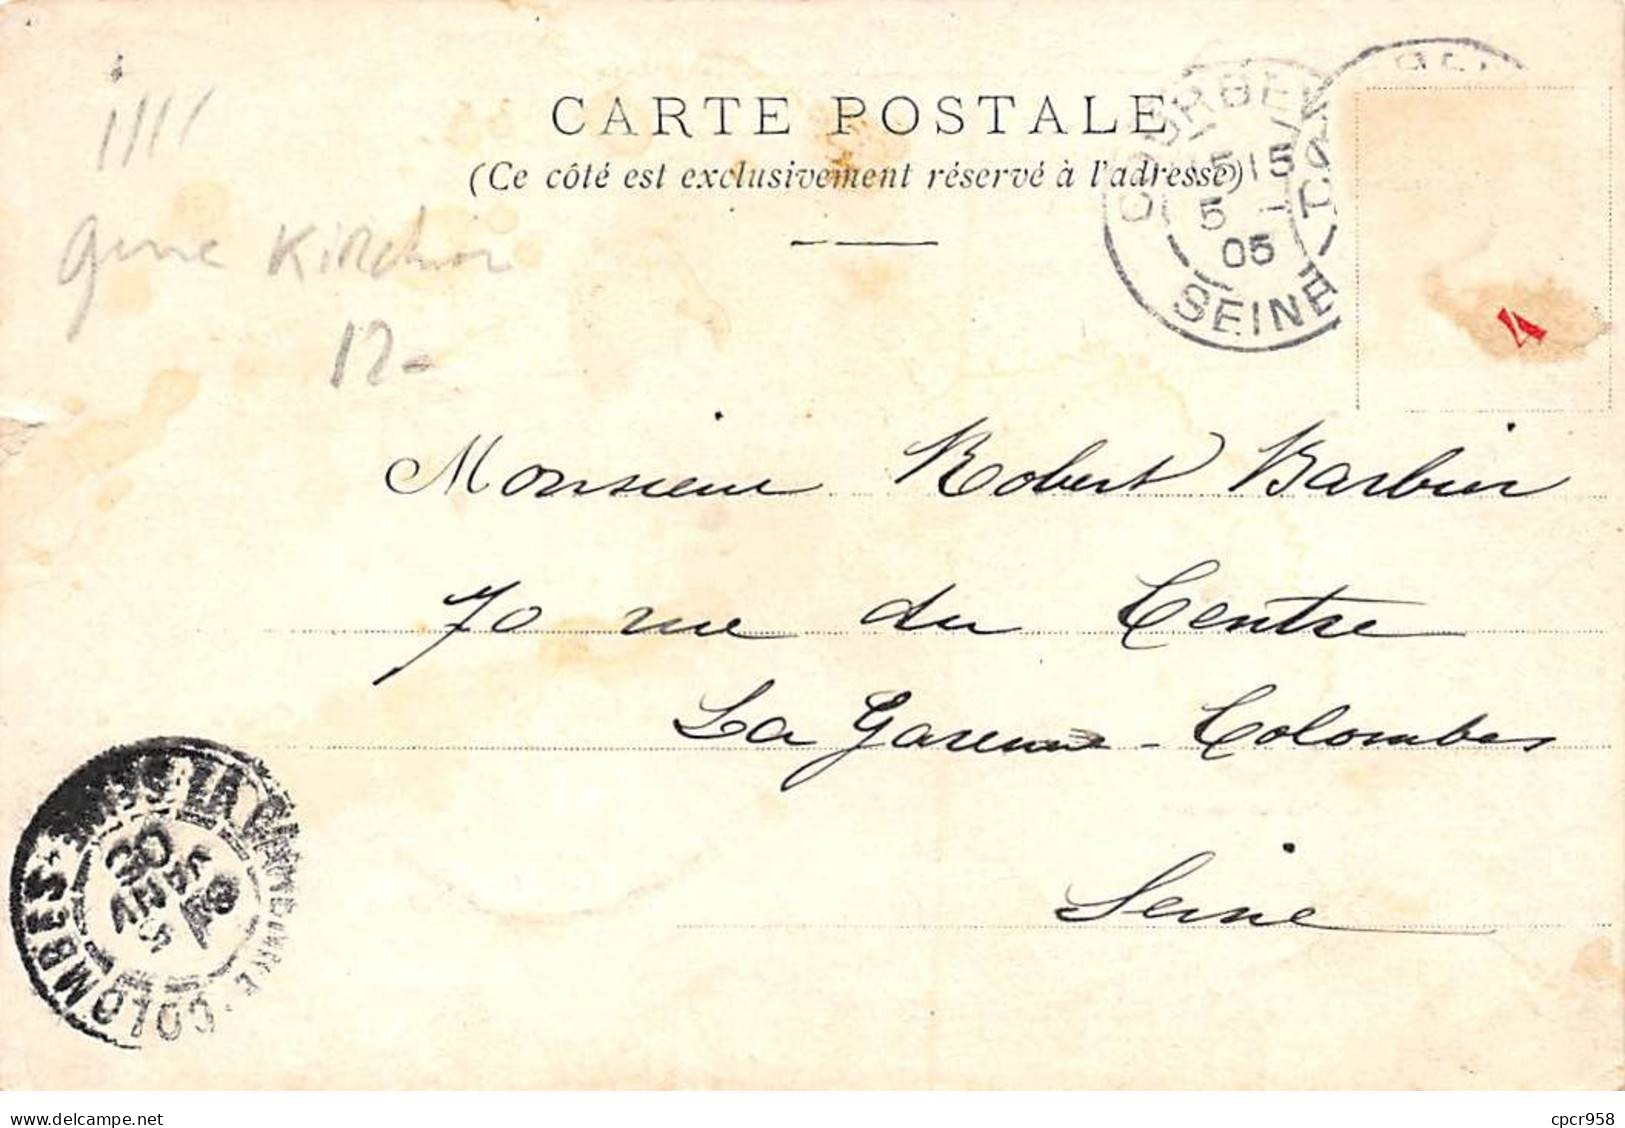 CARTE POSTALE
(Ce côté est exclusivement réservé à l'adresse)
COURBE
15 15
5 -
05
SEINE
4
1111
genre Kirchner
12-
Monsieur Robert Barbier
70 rue du Centre
La Garenne-Colombes
Seine
LA GARENNE-COLOMBES
delcampe.net
cpcr958